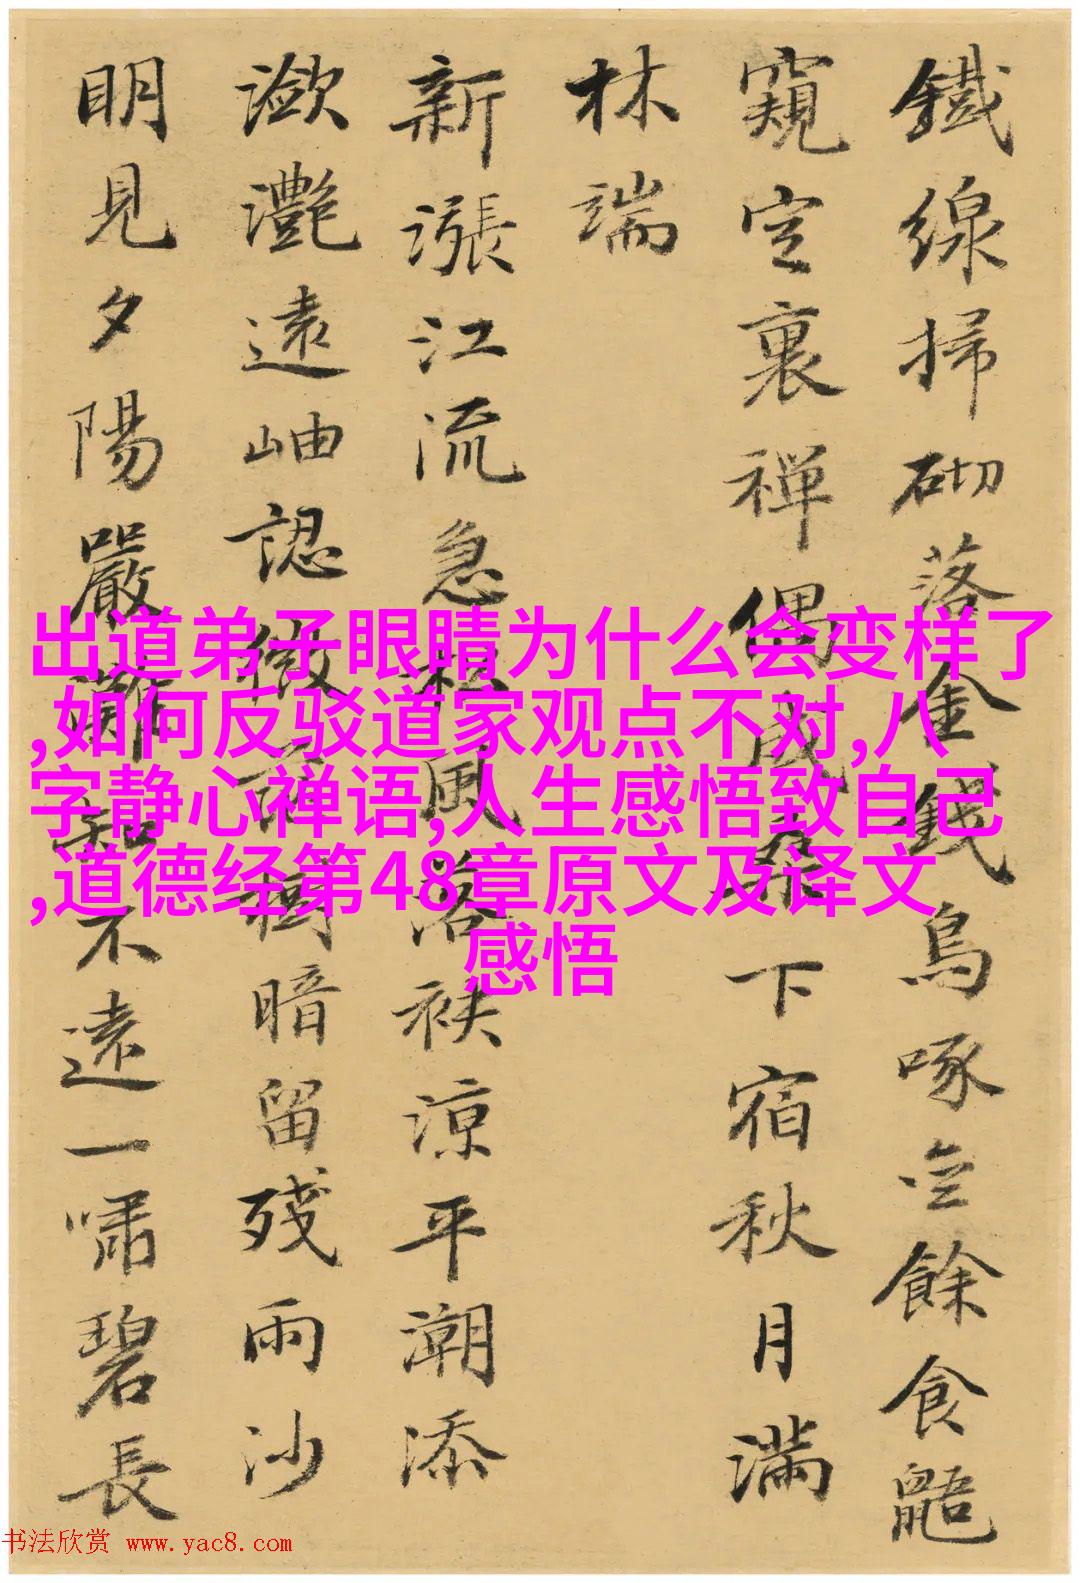 鐵線掃砌落金錢鳥啄空餘食鼯
窺定裏禪偶成桑下宿秋月滿
林端
新漲江流急風落袂涼平潮添
瀲灩遠岫認微樹暗留殘雨沙
明見夕陽嚴灘知不遠一嘯碧長
出道弟子眼睛为什么会变样了
,如何反驳道家观点不对,八
字静心禅语,人生感悟致自己
,道德经第48章原文及译文
感悟
书法欣赏 www.yac8.com